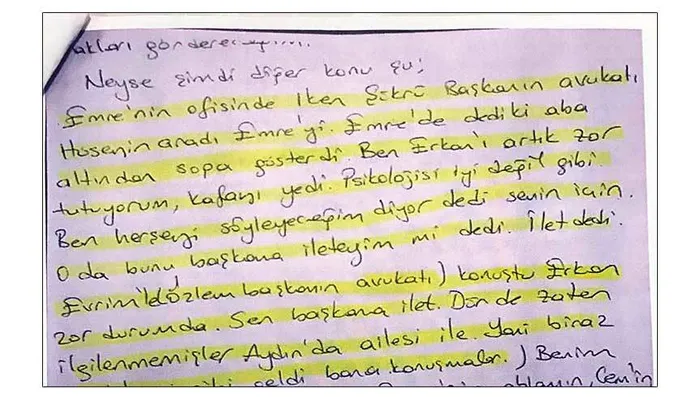 göndereceğim.
Neyse şimdi diğer konu şu;
Emre'nin ofisinde iken Şükrü Başkanın avukatı
Hüseyin aradı Emre'yi. Emre'de dedi ki aba
altından sopa gösterdi. Ben Erkan'ı artık zor
tutuyorum, kafayı yedi. Psikolojisi iyi değil gibi.
Ben herşeyi söyleyeceğim diyor dedi senin için.
O da bunu başkana ileteyim mi dedi. İlet dedi.
Evrim'de Özlem başkanın avukatı) konuştu Erkan
zor durumda. Sen başkana ilet. Dün de zaten
ilgilenmemişler Aydın'da ailesi ile. Yani biraz
geldi bana konuşmalar.) Benim
ablamın, Cem'in